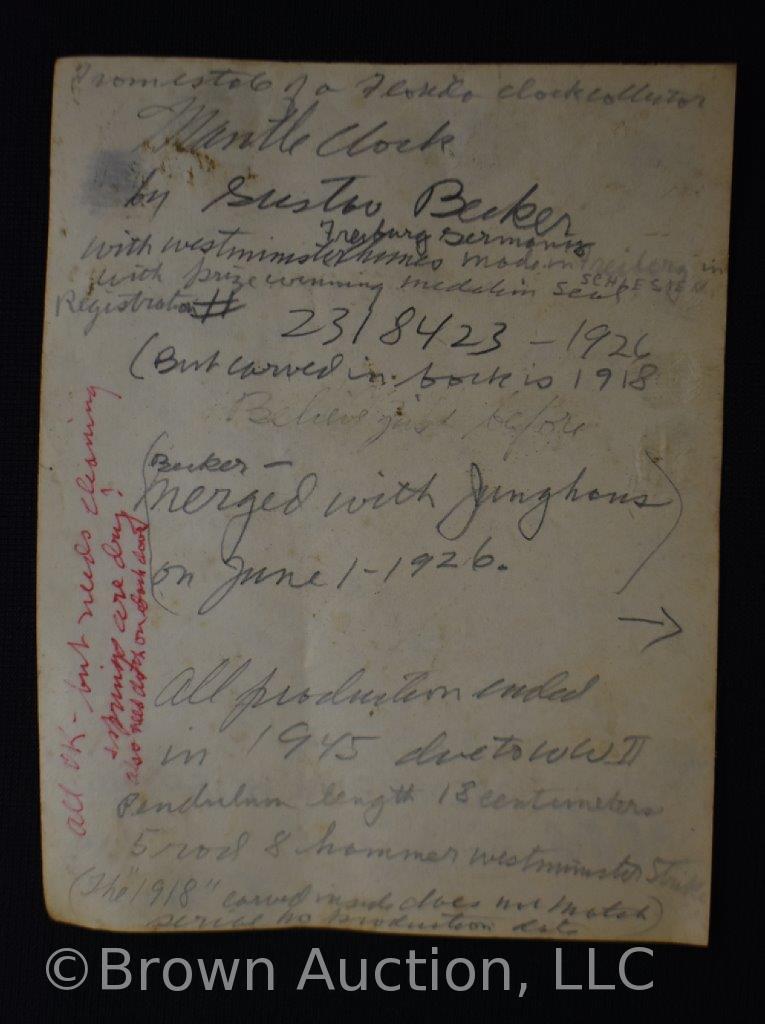 From estate of a Florida clock collector
Mantle Clock
by Gustav Becker
Freiburg Germany
with westminster chimes made in Freiberg in
with prize winning medalion seal SCHLESIEN
Registration # 2318423 - 1926
(But carved in back is 1918
Believe just before
Becker -
(merged with Junghans
on June 1-1926.)
→
All production ended
in 1945 due to WW II
Pendulum length 18 centimeters
5 rod 8 hammer westminster Strike
(The "1918" carved inside does not match)
serial no production date
all OK - but needs cleaning
springs are dry!
also needs on back door
©Brown Auction, LLC